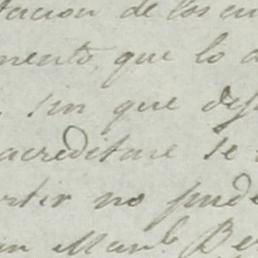 tacion de los cu
mento, que lo a
, sin que des
acreditare se
rtir no pude
an Man.l Be